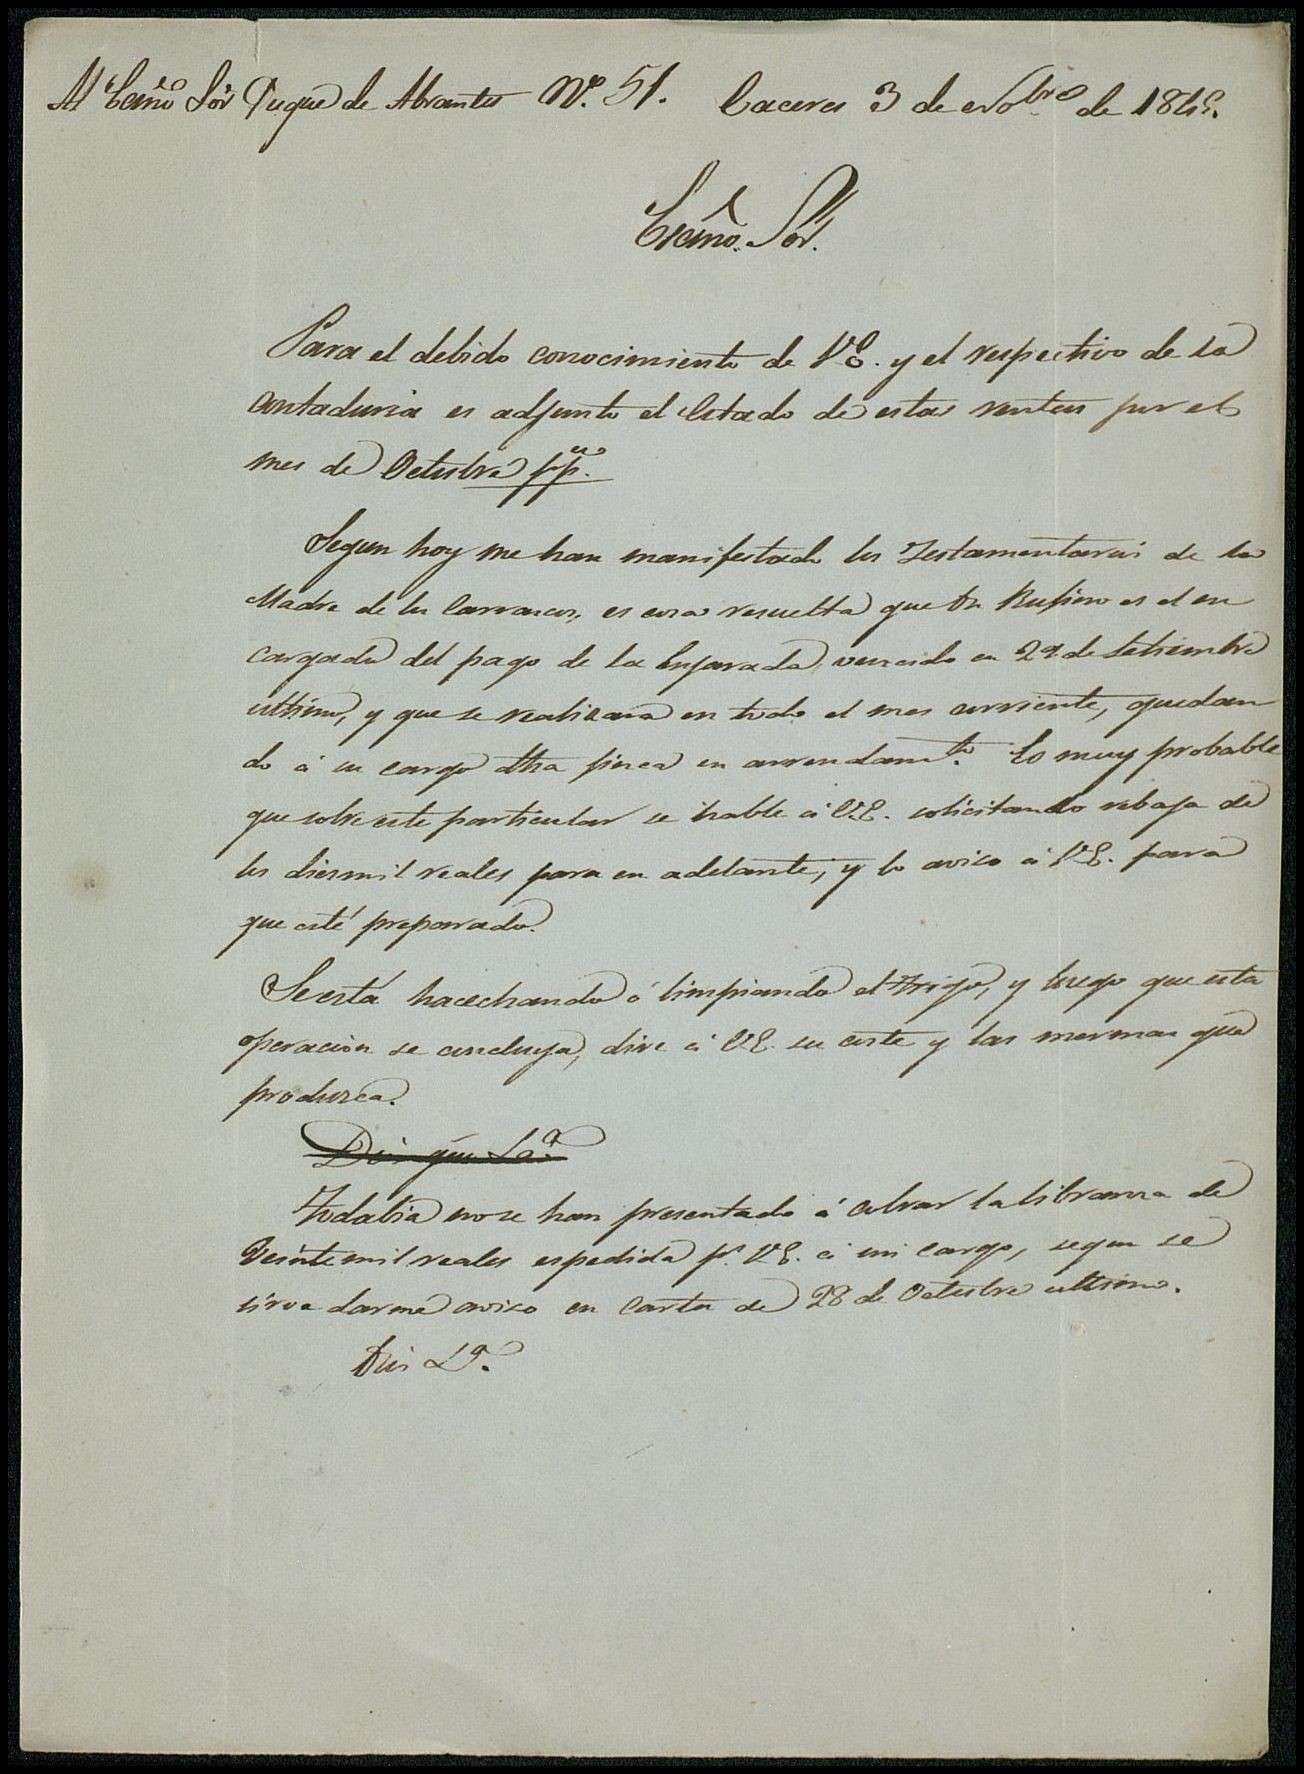 Al Excmo Sör Duque de Abrantes Nº. 51. Caceres 3 de Nobre de 1845.
Excmo. Sör.
Para el debido conocimiento de V.E. y el respectivo de la
contaduria es adjunto el Estado de estas rentas por el
mes de Octubre ppdo.
Segun hoy me han manifestado los Testamentarios de la
Madre de los Carrascos, es cosa resuelta que Dn Rufino es el en
cargado del pago de la Enjarada vencido en 29 de Setiembre
ultimo, y que se realizara en todo el mes corriente, quedan
do á su cargo dha finca en arrendamto. Es muy probable
que sobre este particular se hable á V.E. solicitando rebaja de
los diezmil reales para en adelante, y lo aviso á V.E. para
que esté preparado.
Se está hacechando ó limpiando el trigo, y luego que esta
operacion se concluya, dire á V.E. su coste y las mermas que
produzca.
Dios gue La
Todabia no se han presentado á cobrar la libranza de
Veinte mil reales espedida pr. V.E. á mi cargo, segun se
sirve darme aviso en carta de 28 de Octubre ultimo.
Dios Lª.